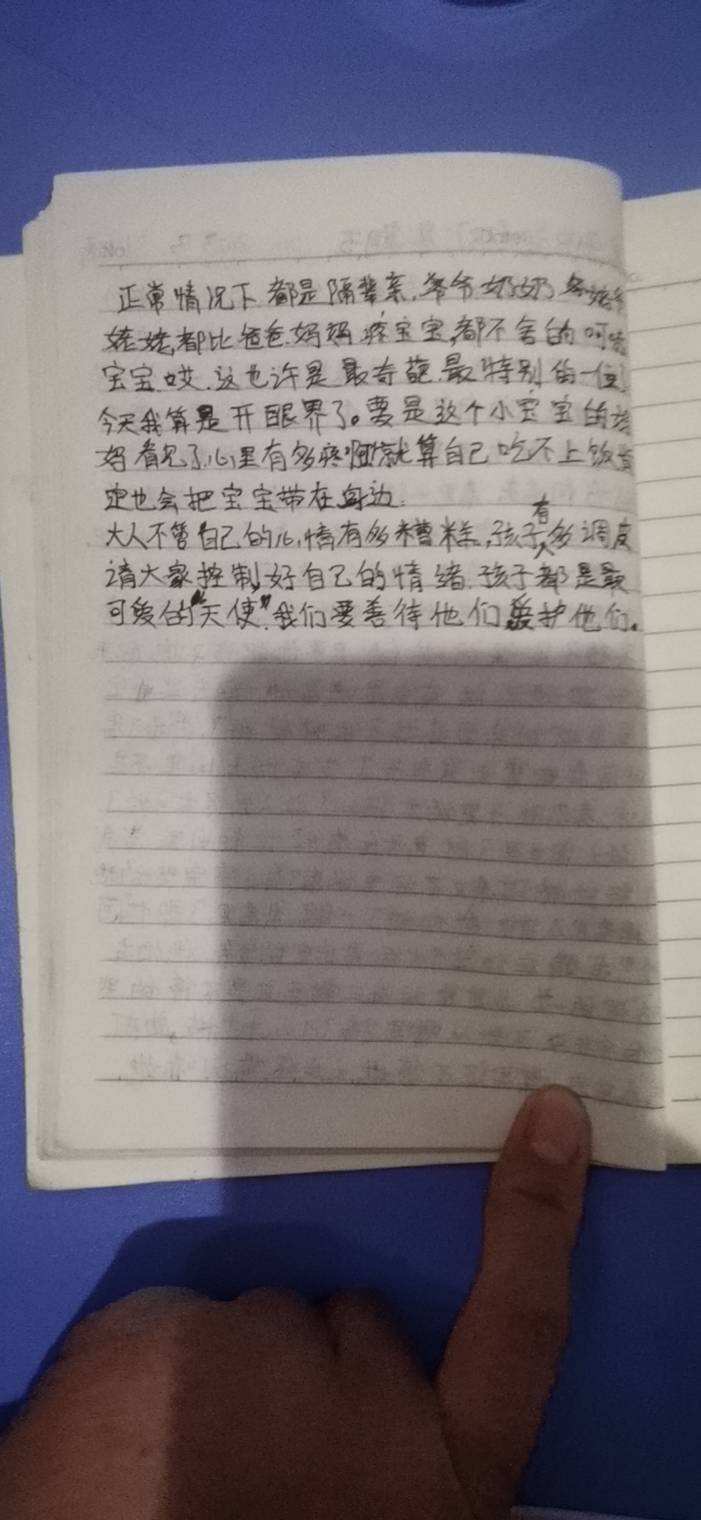 正常情况下都是隔辈亲.爷爷奶奶
姥姥,都比爸爸妈妈疼宝宝,都不舍的呵
宝宝哎.这也许是最奇葩.最特别的一位
今天我算是开眼界了。要是这个小宝宝的
妈看见了,心里有多疼啊,就算自己吃不上饭
定也会把宝宝带在身边.
大人不管自己的心情有多糟糕,孩子有多调皮
请大家控制好自己的情绪.孩子都是最
可爱的"天使".我们要善待他们爱护他们.